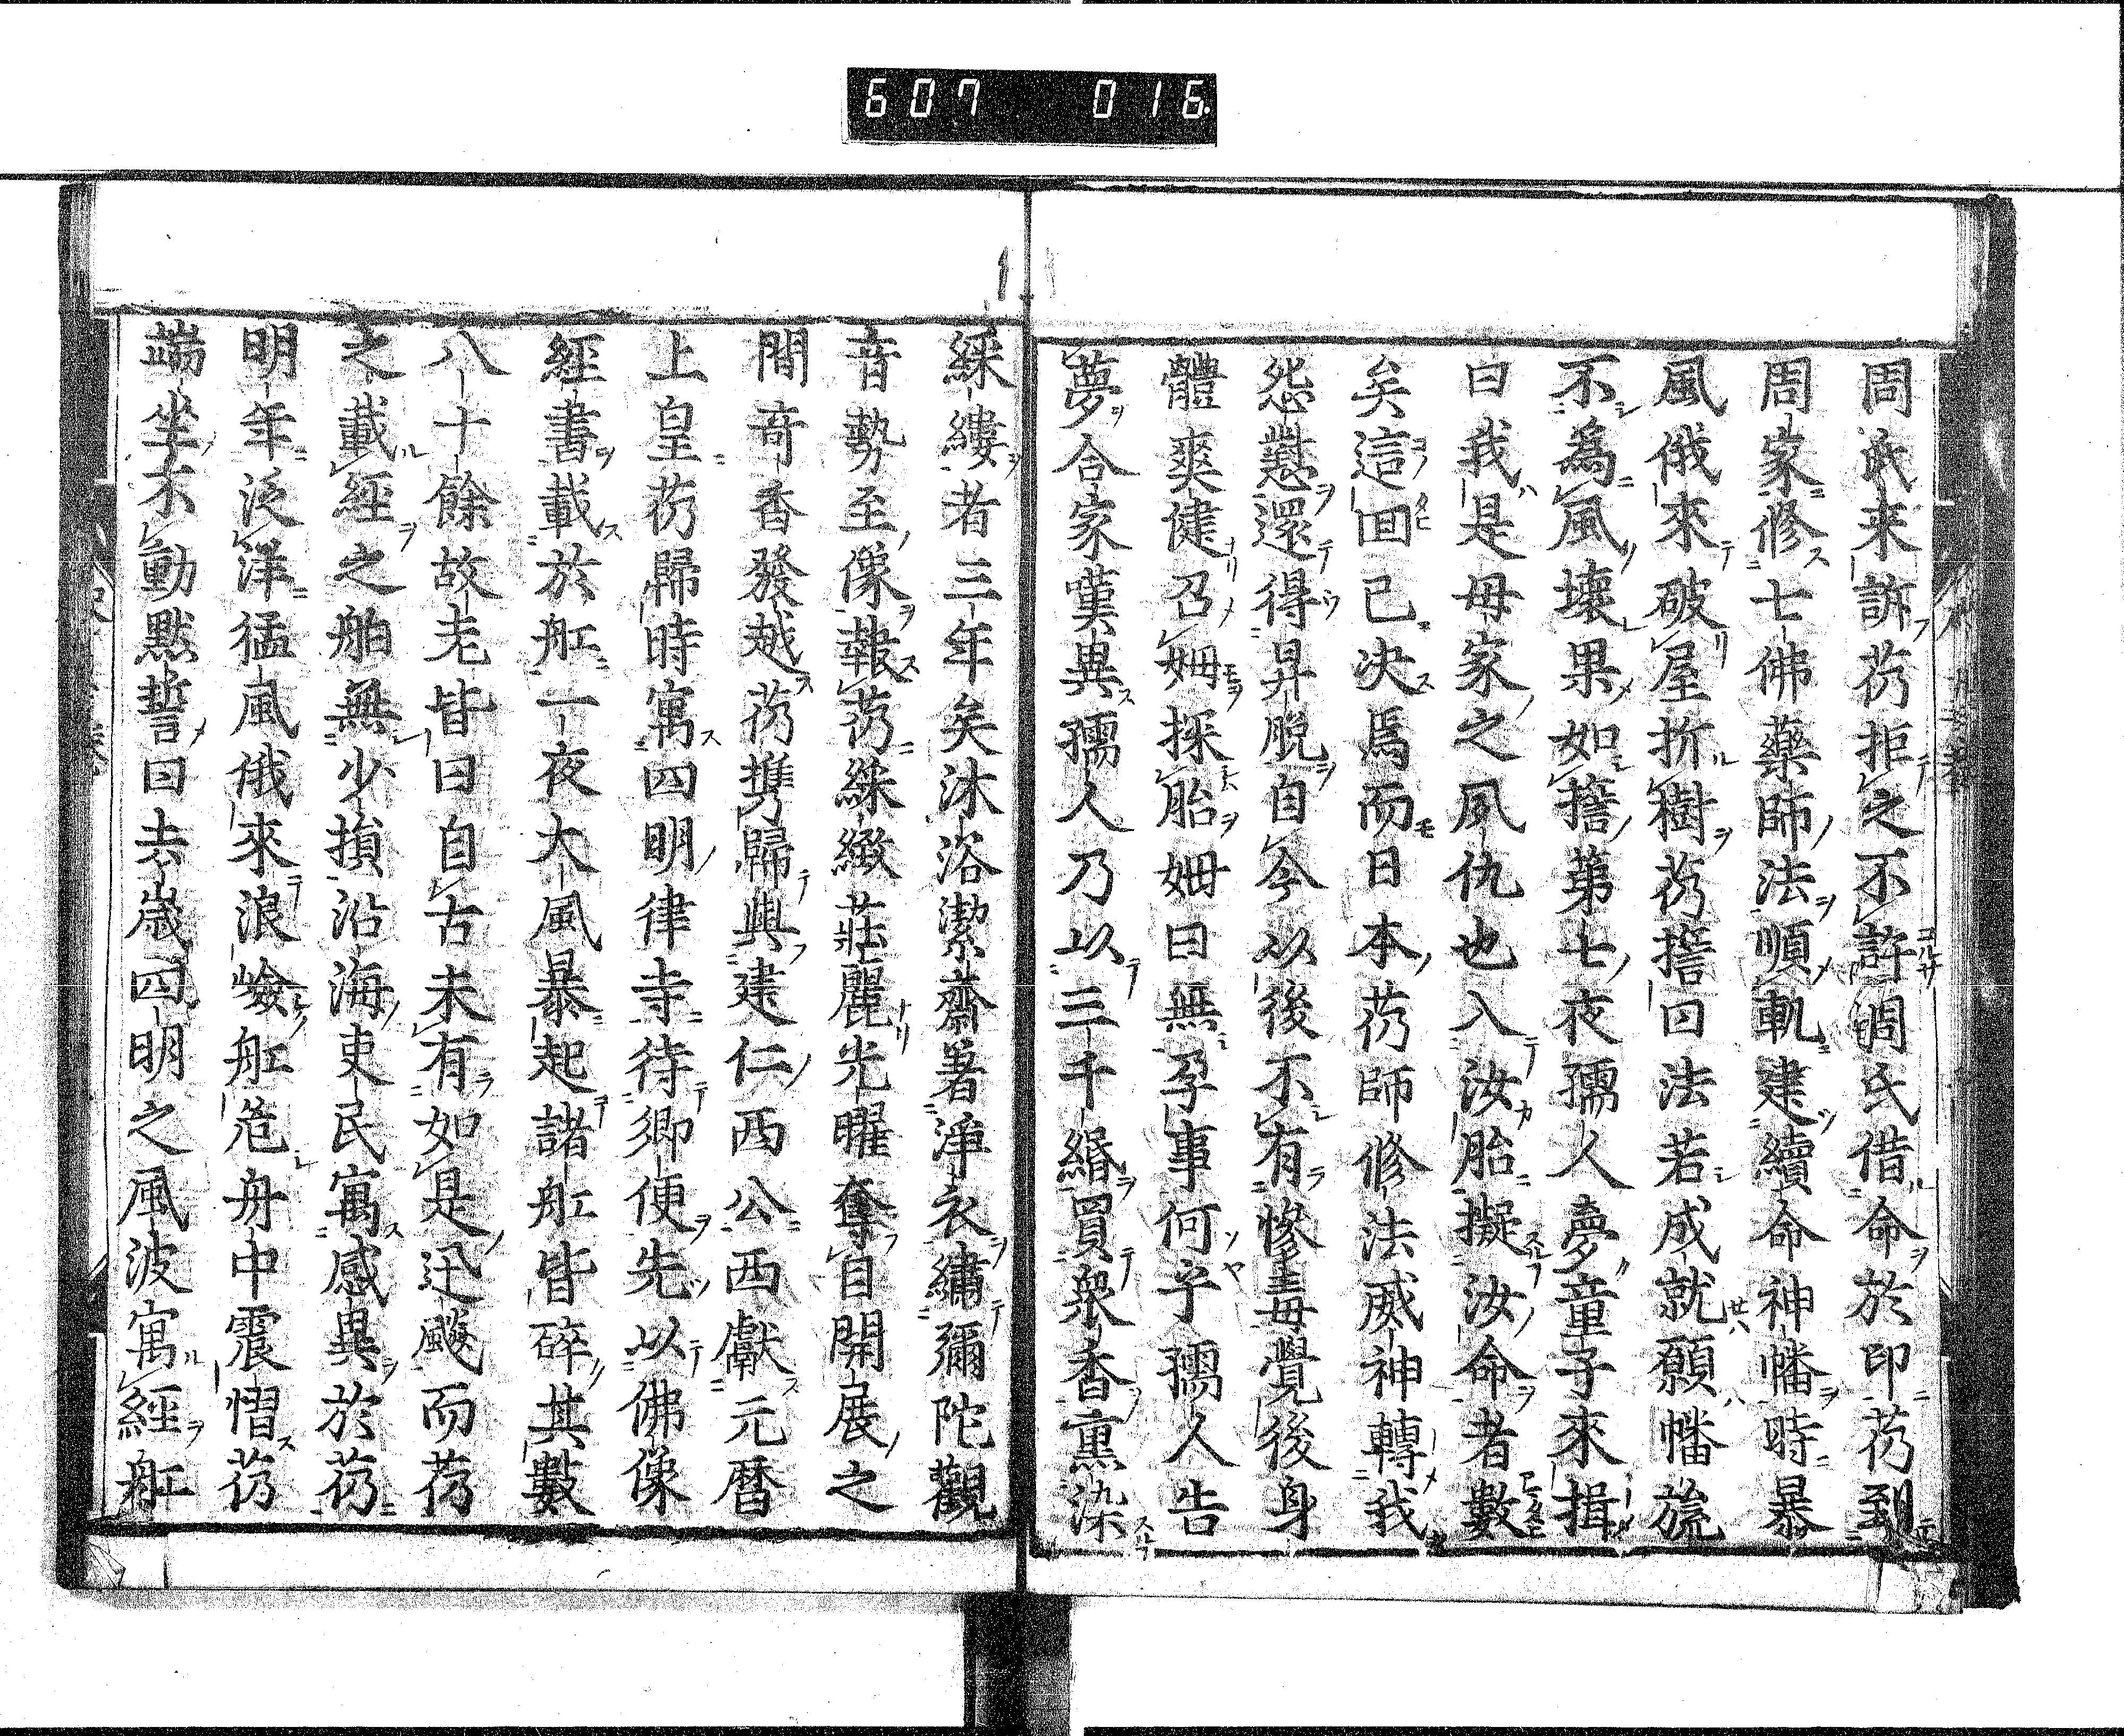 607 016.
周氏来訴芿拒之不許周氏借命於印芿到
周家修七佛藥師法順軌建續命神幡時暴
風俄來破屋折樹芿誓曰法若成就願幡旒
不為風壞果如誓第七夜孺人夢童子來揖
曰我是毋家之夙仇也入汝胎擬汝命者數
矣這囬已决焉而日本芿師修法威神轉我
怨懟還得昇脱自今以後不有慘毒毋覺後身
體爽健召姆探胎姆曰無孕事何乎孺人告
夢合家嘆異孺人乃以三千緡買衆香熏染
綵縷者三年矣沐浴潔齋著淨衣繡彌陀觀
音勢至像報芿綵緻莊麗光曜奪目開展之
間奇香發越芿携歸與建仁西公西獻元暦
上皇芿歸時寓四明律寺待郷便先以佛像
經書載於舡一夜大風暴起諸舡皆碎其數
八十餘故老皆曰自古未有如是迅颷而芿
之載經之舶無少損沿海吏民寓感異於芿
明年泛洋猛風俄來浪嶮舡危舟中震慴芿
端坐不動黙誓曰去歳四明之風波寓經舡